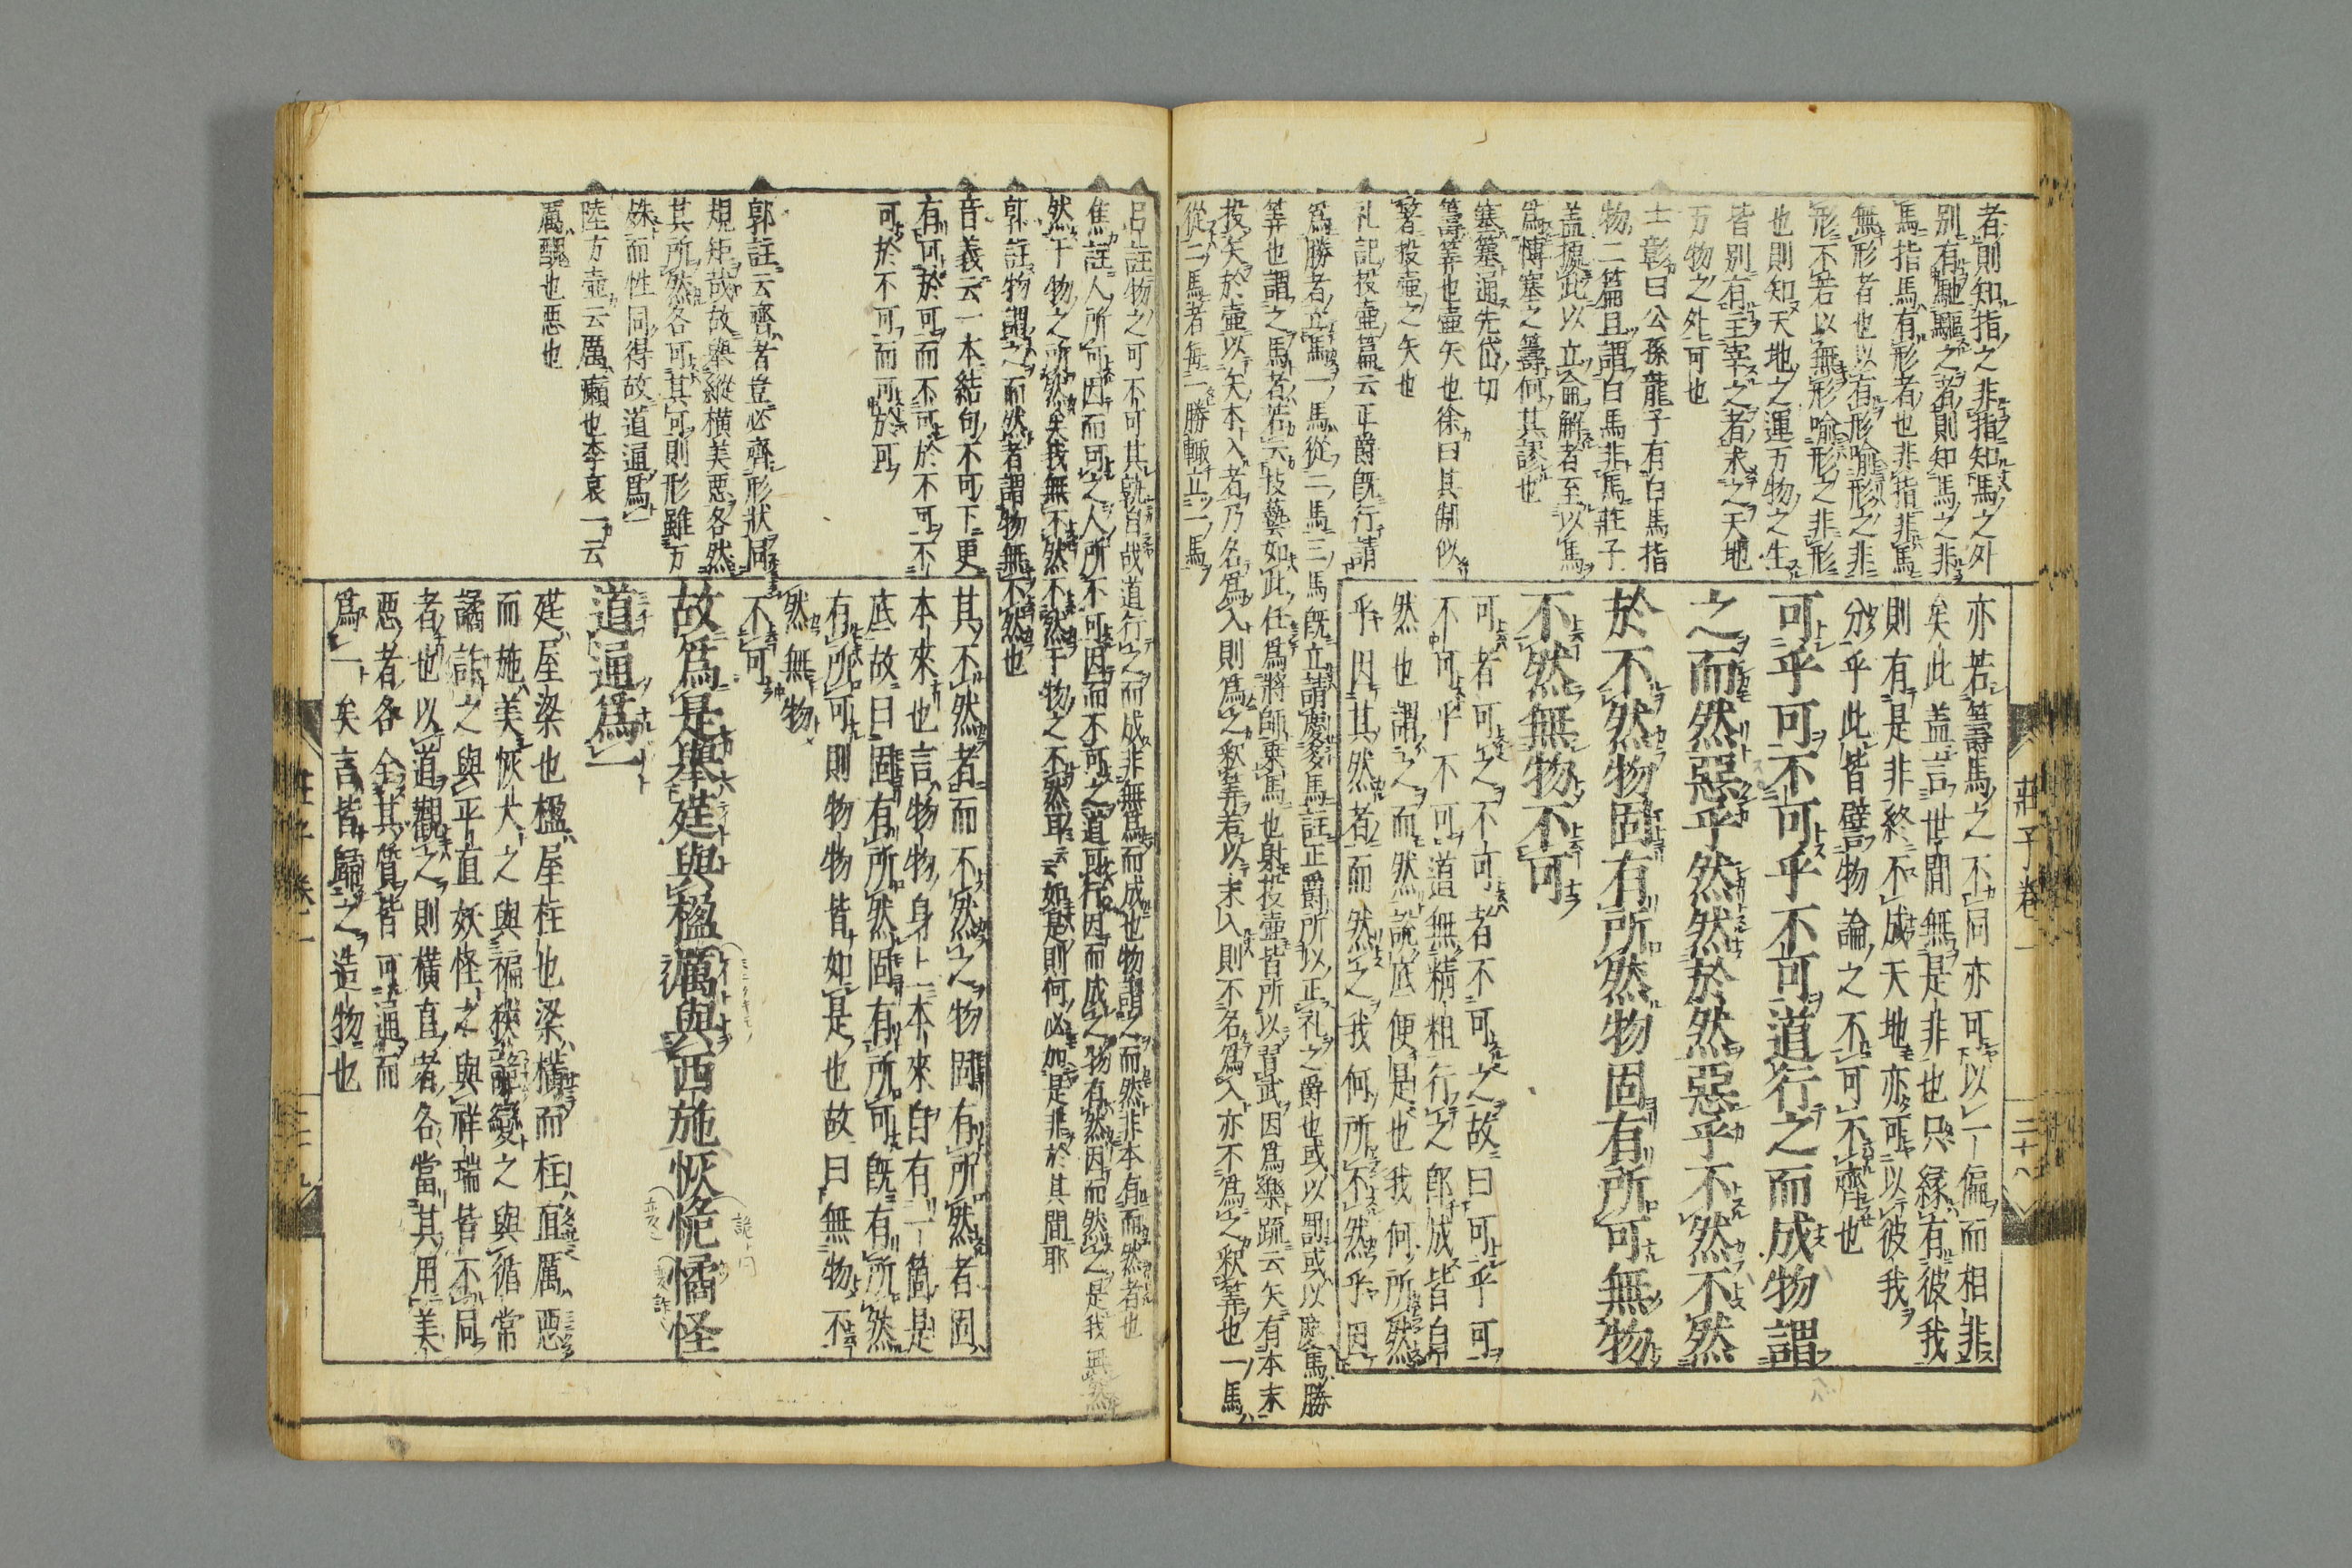 者則知指之非指知馬之外
別有馳驅之者則知馬之非
馬指馬有形者也非指非馬
無形者也以有形喩形之非
形不若以無形喩形之非形
也則知天地之運万物之生
皆別有主宰之者求之天地
万物之外可也
士彰曰公孫龍子有白馬指
物二篇且謂白馬非馬莊子
盖據此以立侖解者至以馬
爲博塞之籌何其謬也
塞簺通先岱切
籌筭也壷矢也徐曰其制似
箸投壷之矢也
礼記投壷篇云正爵旣行請
爲勝者立馬一馬從二馬三馬旣立請慶多馬註正爵所以正礼之爵也或以罰或以慶馬勝
筭也謂之馬者若云技藝如此任爲將帥乗馬也射投壷皆所以習武因爲樂疏云矢有本末
投矢於壷以矢本入者乃名爲入則爲之釈筭若以末入則不名爲入亦不爲之釈筭也一馬
從二馬者毎一勝輙立一馬
亦若籌馬之不同亦可以一偏而相非
矣此盖言世間無是非也只縁有彼我
則有是非終不成天地亦可以彼我
分乎此皆譬物論之不可不齊也
可乎可不可乎不可道行之而成物謂
之而然惡乎然然於然惡乎不然不然
於不然物固有所然物固有所可無物
不然無物不可
可者可之不可者不可之故曰可乎可
不可乎不可道無精粗行之即成皆自
然也謂之而然説底便是也我何所然
乎因其然者而然之我何所不然乎因
莊子卷一
二十八
呂註物之可不可其孰自哉道行之而成非無爲而成也物謂之而然非本有而然者也
焦註人所可因而可之人所不可因而不可之道可行因而成之物有然因而然之是我無然
然于物之所然矣我無不然不然于物之不然耳云如是則何必如是非於其間耶
郭註物謂之而然者謂物無不然也
音義云一本結句不可下更
有可於可而不可於不可不
可於不可而可於可
郭註云齊者豈必齊形狀同
規矩哉故舉縱橫美悪各然
其所然各可其可則形雖万
殊而性同得故道通爲一
陸方壷云厲癩也李哀一云
厲醜也悪也
其不然者而不然之物固有所然者固
本來也言物物身上本來自有一箇是
底故曰固有所然固有所可旣有所然
有所可則物物皆如是也故曰無物不
然無物
不可
故爲是舉莛與楹厲與西施恢恑憰怪
道通爲一
莛屋梁也楹屋柱也梁橫而柱直厲悪
而施美恢大之與褊狹詭變之與循常
譎詐之與平直妖怪之與祥瑞皆不同
者也以道觀之則橫直者各當其用美
悪者各全其質皆可通而
爲一矣言皆歸之造物也